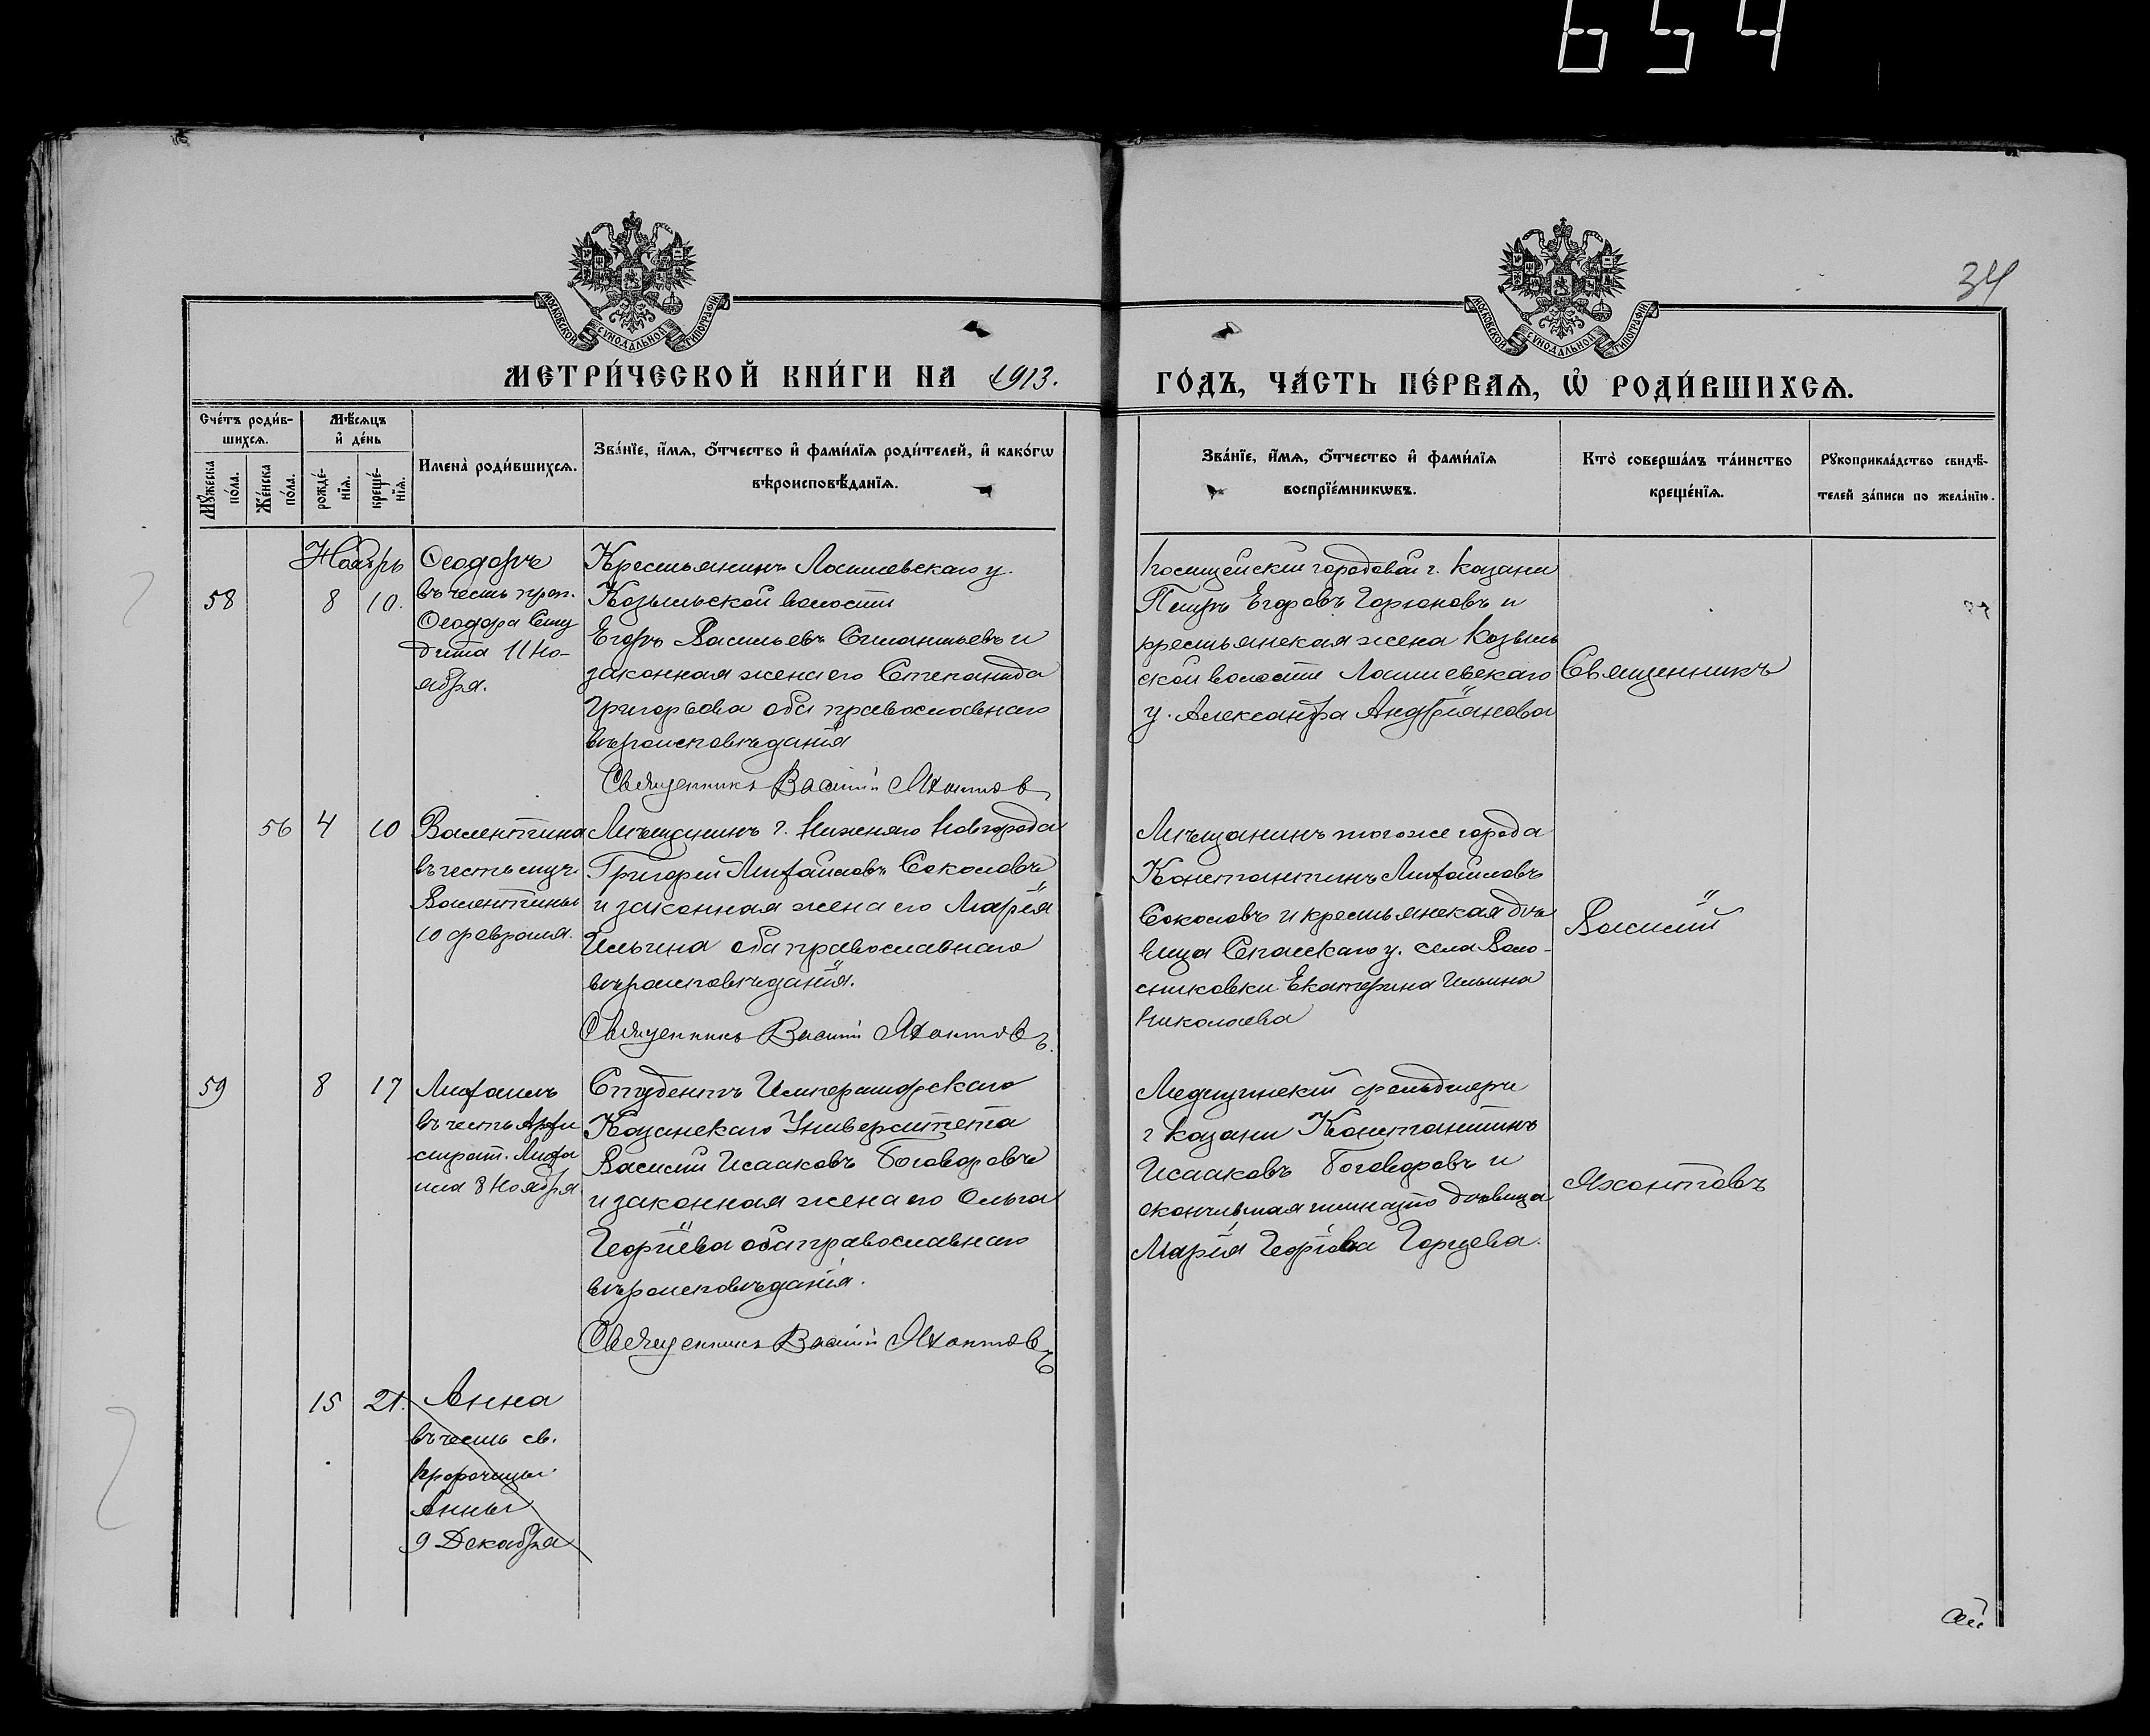 654
34
МОСКОВСКОЙ СѴНОДАЛЬНОЙ ТИПОГРАФІИ
МОСКОВСКОЙ СѴНОДАЛЬНОЙ ТИПОГРАФІИ
МЕТРИ́ЧЕСКОЙ КНИ́ГИ НА 1913.
ГО́ДЪ, ЧА́СТЬ ПЕ́РВАѦ, Ѡ҆ РОДИ́ВШИХСѦ.
Сче́тъ роди́в-
шихсѧ.
Мꙋ́жеска
по́ла.
Же́нска
по́ла.
Мѣ́сѧцъ
и҆ де́нь
рожде́-
нїѧ.
креще́-
нїѧ.
Имена̀ роди́вшихсѧ.
Зва́нїе, и҆́мѧ, ѻ҆́тчество и҆ фами́лїѧ роди́телей, и҆ како́гѡ
вѣроисповѣ́данїѧ.
Зва́нїе, и҆́мѧ, ѻ҆́тчество и҆ фами́лїѧ
воспрїе́мникѡвъ.
Кто̀ соверша́лъ та́инство
креще́нїѧ.
Рꙋкоприкла́дство свидѣ́-
телей за́писи по жела́нїю.
Ноябрь
58
8
10.
Ѳеодоръ
въ честь преп.
Ѳеодора Сту
дита 11 Но-
ября.
Крестьянинъ Лаишевскаго у.
Козыльской волости
Егоръ Васильевъ Силантьевъ и
законная жена его Степанида
Григорьева оба православнаго
вѣроисповѣданія
Священникъ Василій Яхонтовъ
Полицейскій городовой г. Казани
Петръ Егоровъ Горюновъ и
крестьянская жена Козыль
ской волости Лаишевскаго
у. Александра Андріянова
Священникъ
56
4
10
Валентина
въ честь муч.
Валентины
10 февраля.
Мѣщанинъ г. Нижняго Новгорода
Григорій Михайловъ Соколовъ
и законная жена его Марія
Ильина оба православнаго
вѣроисповѣданія.
Священникъ Василій Яхонтовъ.
Мѣщанинъ тогоже города
Константинъ Михайловъ
Соколовъ и крестьянская дѣ
вица Спасскаго у. села
Екатерина Ильина
Николаева
Василій
59
8
17
Михаилъ
въ честь Архи
страт. Миха
ила 8 Ноября
Студентъ Императорскаго
Казанскаго Университета
Василій Исааковъ Боговаровъ
и законная жена его Ольга
Георгіева оба православнаго
вѣроисповѣданія.
Священникъ Василій Яхонтовъ
Медицинскій фельдшеръ
г Казани Константинъ
Исааковъ Боговаровъ и
окончившая гимназію дѣвица
Марія Георгіева Горцева.
Яхонтовъ
15
21.
Анна
въ честь св.
пророчицы
Анны
9 Декабря